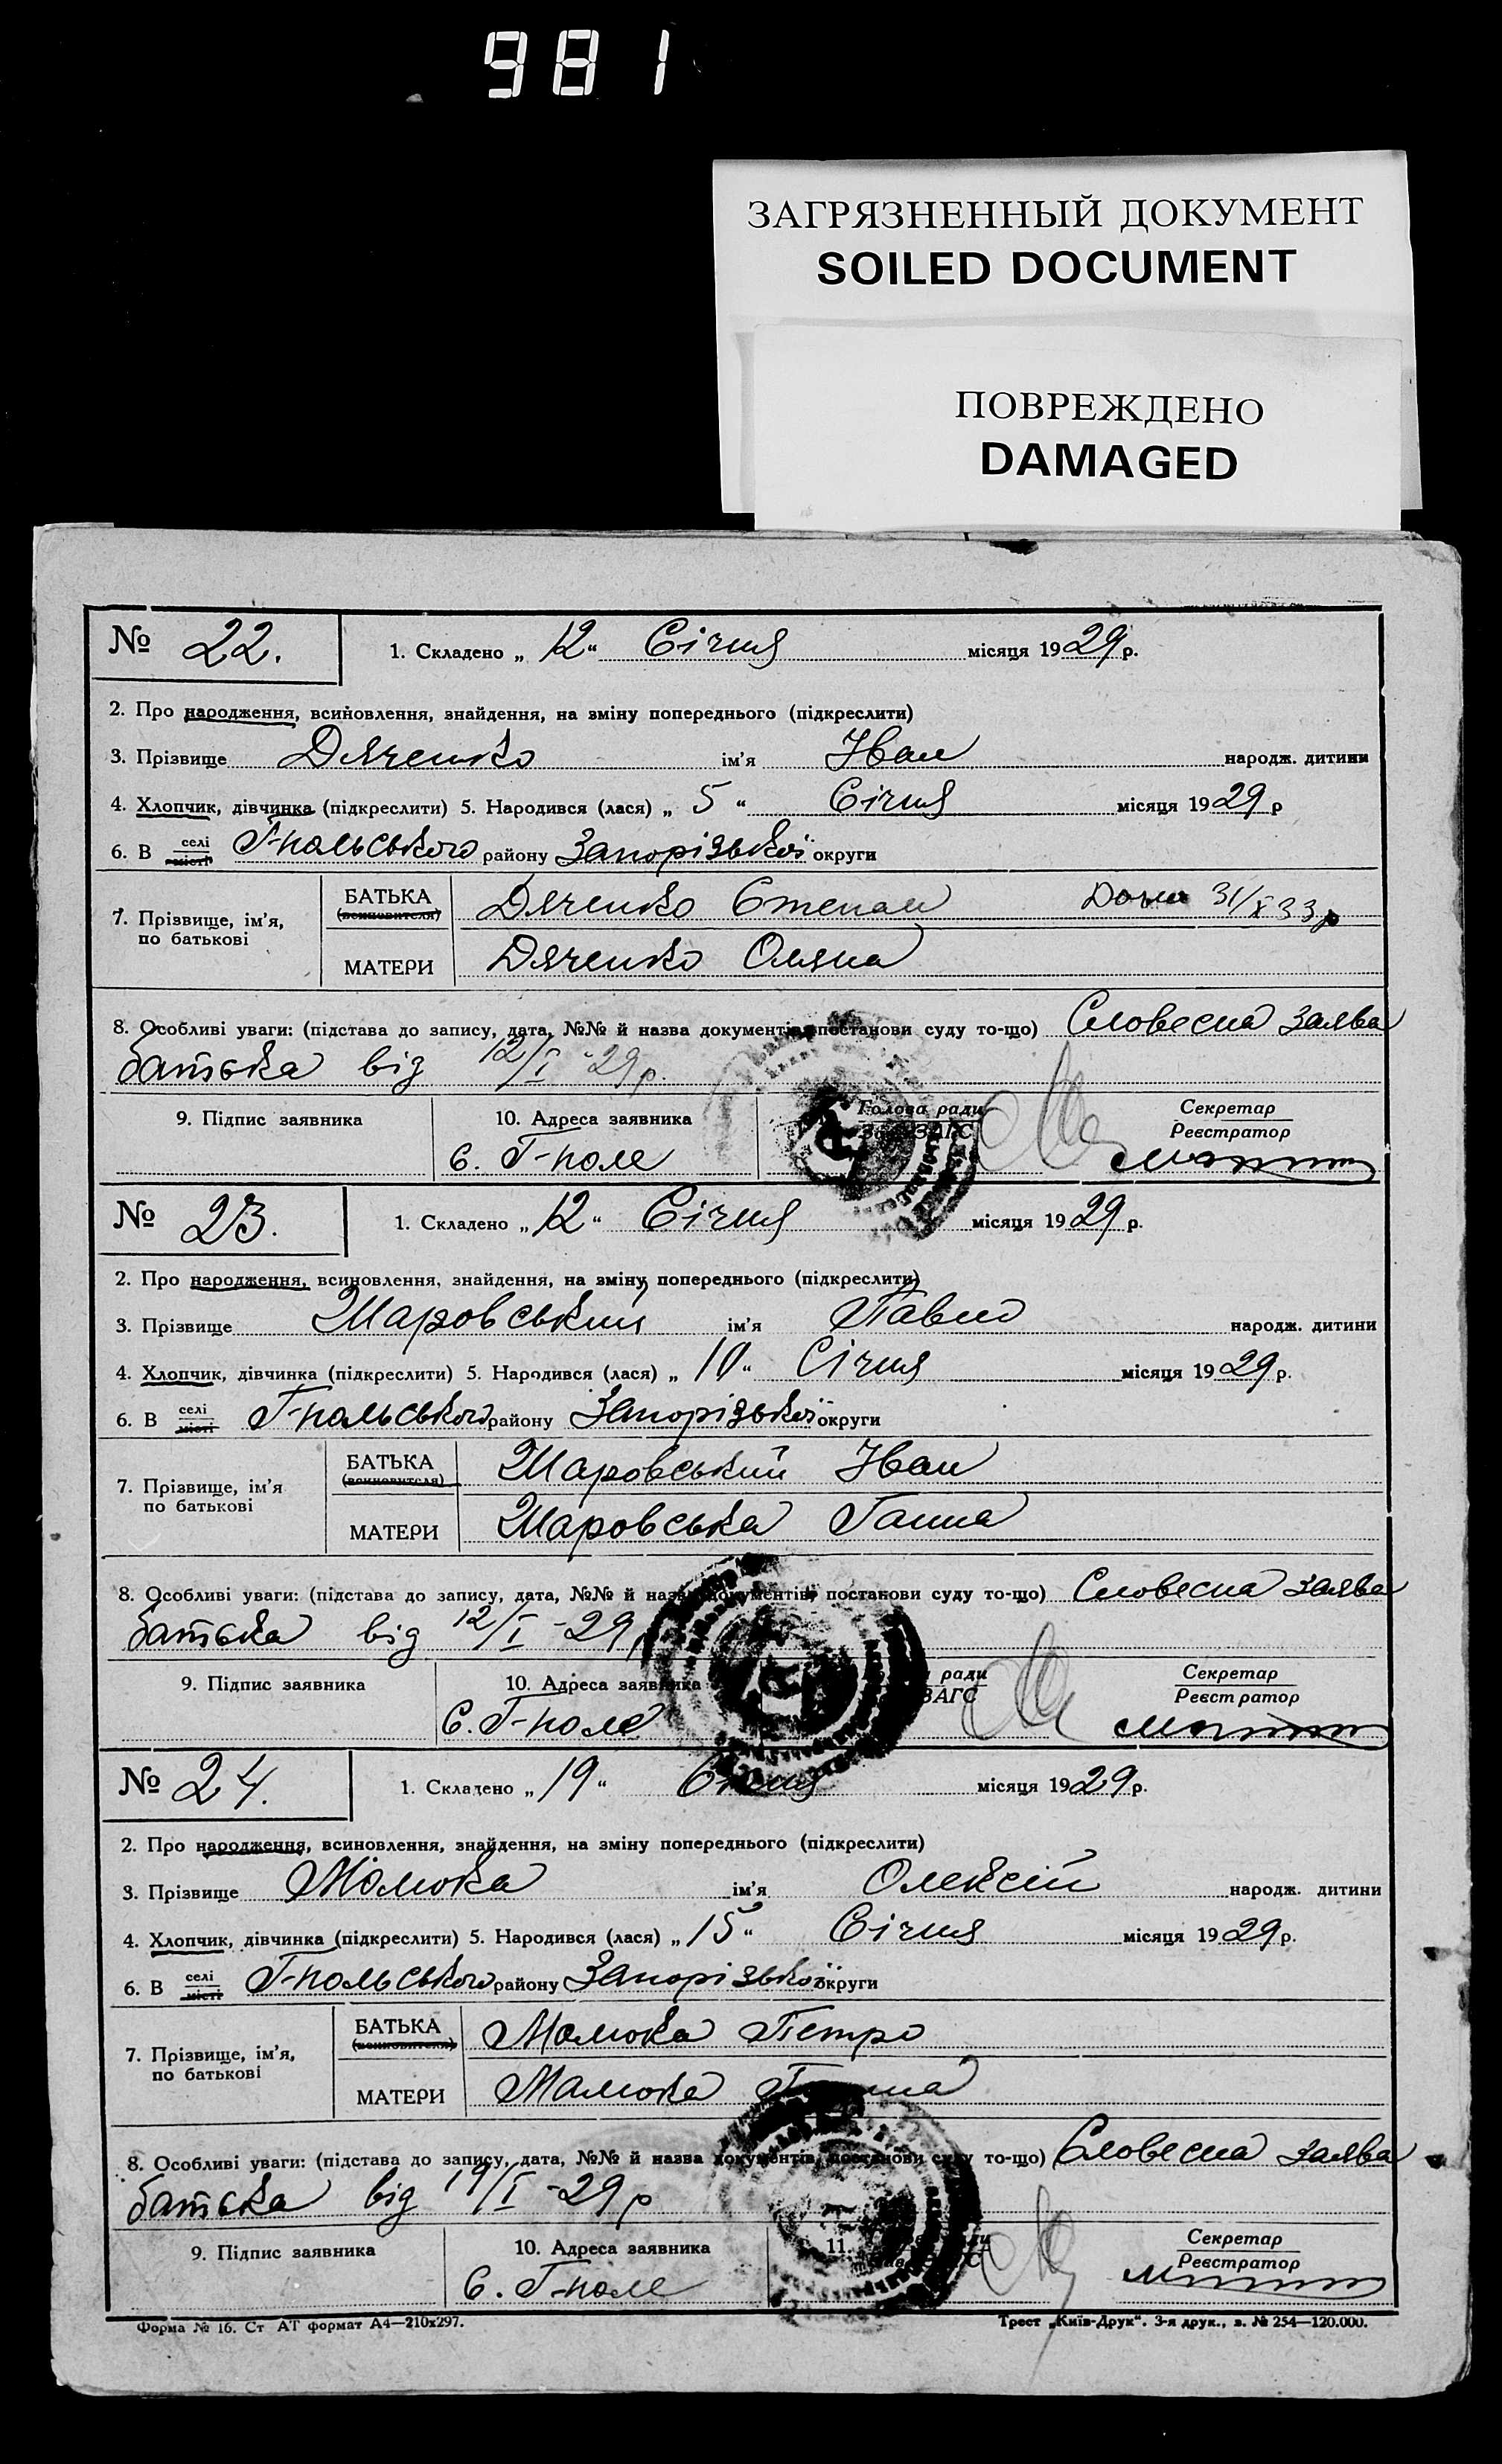 981
ЗАГРЯЗНЕННЫЙ ДОКУМЕНТ
SOILED DOCUMENT
ПОВРЕЖДЕНО
DAMAGED
№ 22. 1. Складено „ 12 “ Січня місяця 1929 р.
2. Про народження, всиновлення, знайдення, на зміну попереднього (підкреслити)
3. Прізвище Дяченко ім’я Іван народж. дитини
4. Хлопчик, дівчинка (підкреслити) 5. Народився (лася) „ 5 “ Січня місяця 1929 р
6. В селі місті Г-польського району Запорізької округи
7. Прізвище, ім’я, по батькові БАТЬКА (всиновителя) Дяченко Степан 31/X 33 р
МАТЕРИ Дяченко Оляна
8. Особливі уваги: (підстава до запису, дата, №№ й назва документів, постанови суду то-що) Словесна заява
батька від 12/I -29 р.
9. Підпис заявника 10. Адреса заявника Голова ради ЗАГС Секретар Реєстратор
с. Г-поле
№ 23. 1. Складено „ 12 “ Січня місяця 1929 р.
2. Про народження, всиновлення, знайдення, на зміну попереднього (підкреслити)
3. Прізвище Шаровський ім’я Павло народж. дитини
4. Хлопчик, дівчинка (підкреслити) 5. Народився (лася) „ 10 “ Січня місяця 1929 р.
6. В селі місті Г-польського району Запорізької округи
7. Прізвище, ім’я по батькові БАТЬКА (всиновителя) Шаровський Іван
МАТЕРИ Шаровська Ганна
8. Особливі уваги: (підстава до запису, дата, №№ й назва документів, постанови суду то-що) Словесна заява
батька від 12/I -29
9. Підпис заявника 10. Адреса заявника ради ЗАГС Секретар Реєстратор
С. Г-поле
№ 24. 1. Складено „ 19 “ Січня місяця 1929 р.
2. Про народження, всиновлення, знайдення, на зміну попереднього (підкреслити)
3. Прізвище Малюка ім’я Олексій народж. дитини
4. Хлопчик, дівчинка (підкреслити) 5. Народився (лася) „ 15 “ Січня місяця 1929 р.
6. В селі місті Г-польського району Запорізької округи
7. Прізвище, ім’я, по батькові БАТЬКА (всиновителя) Малюка Петро
МАТЕРИ Малюка
8. Особливі уваги: (підстава до запису, дата, №№ й назва документів, постанови суду то-що) Словесна заява
батька від 19/I -29 р
9. Підпис заявника 10. Адреса заявника 11. Секретар Реєстратор
с. Г-поле
Форма № 16. Ст АТ формат А4—210х297. Трест „Київ-Друк“. 3-я друк., з. № 254—120.000.